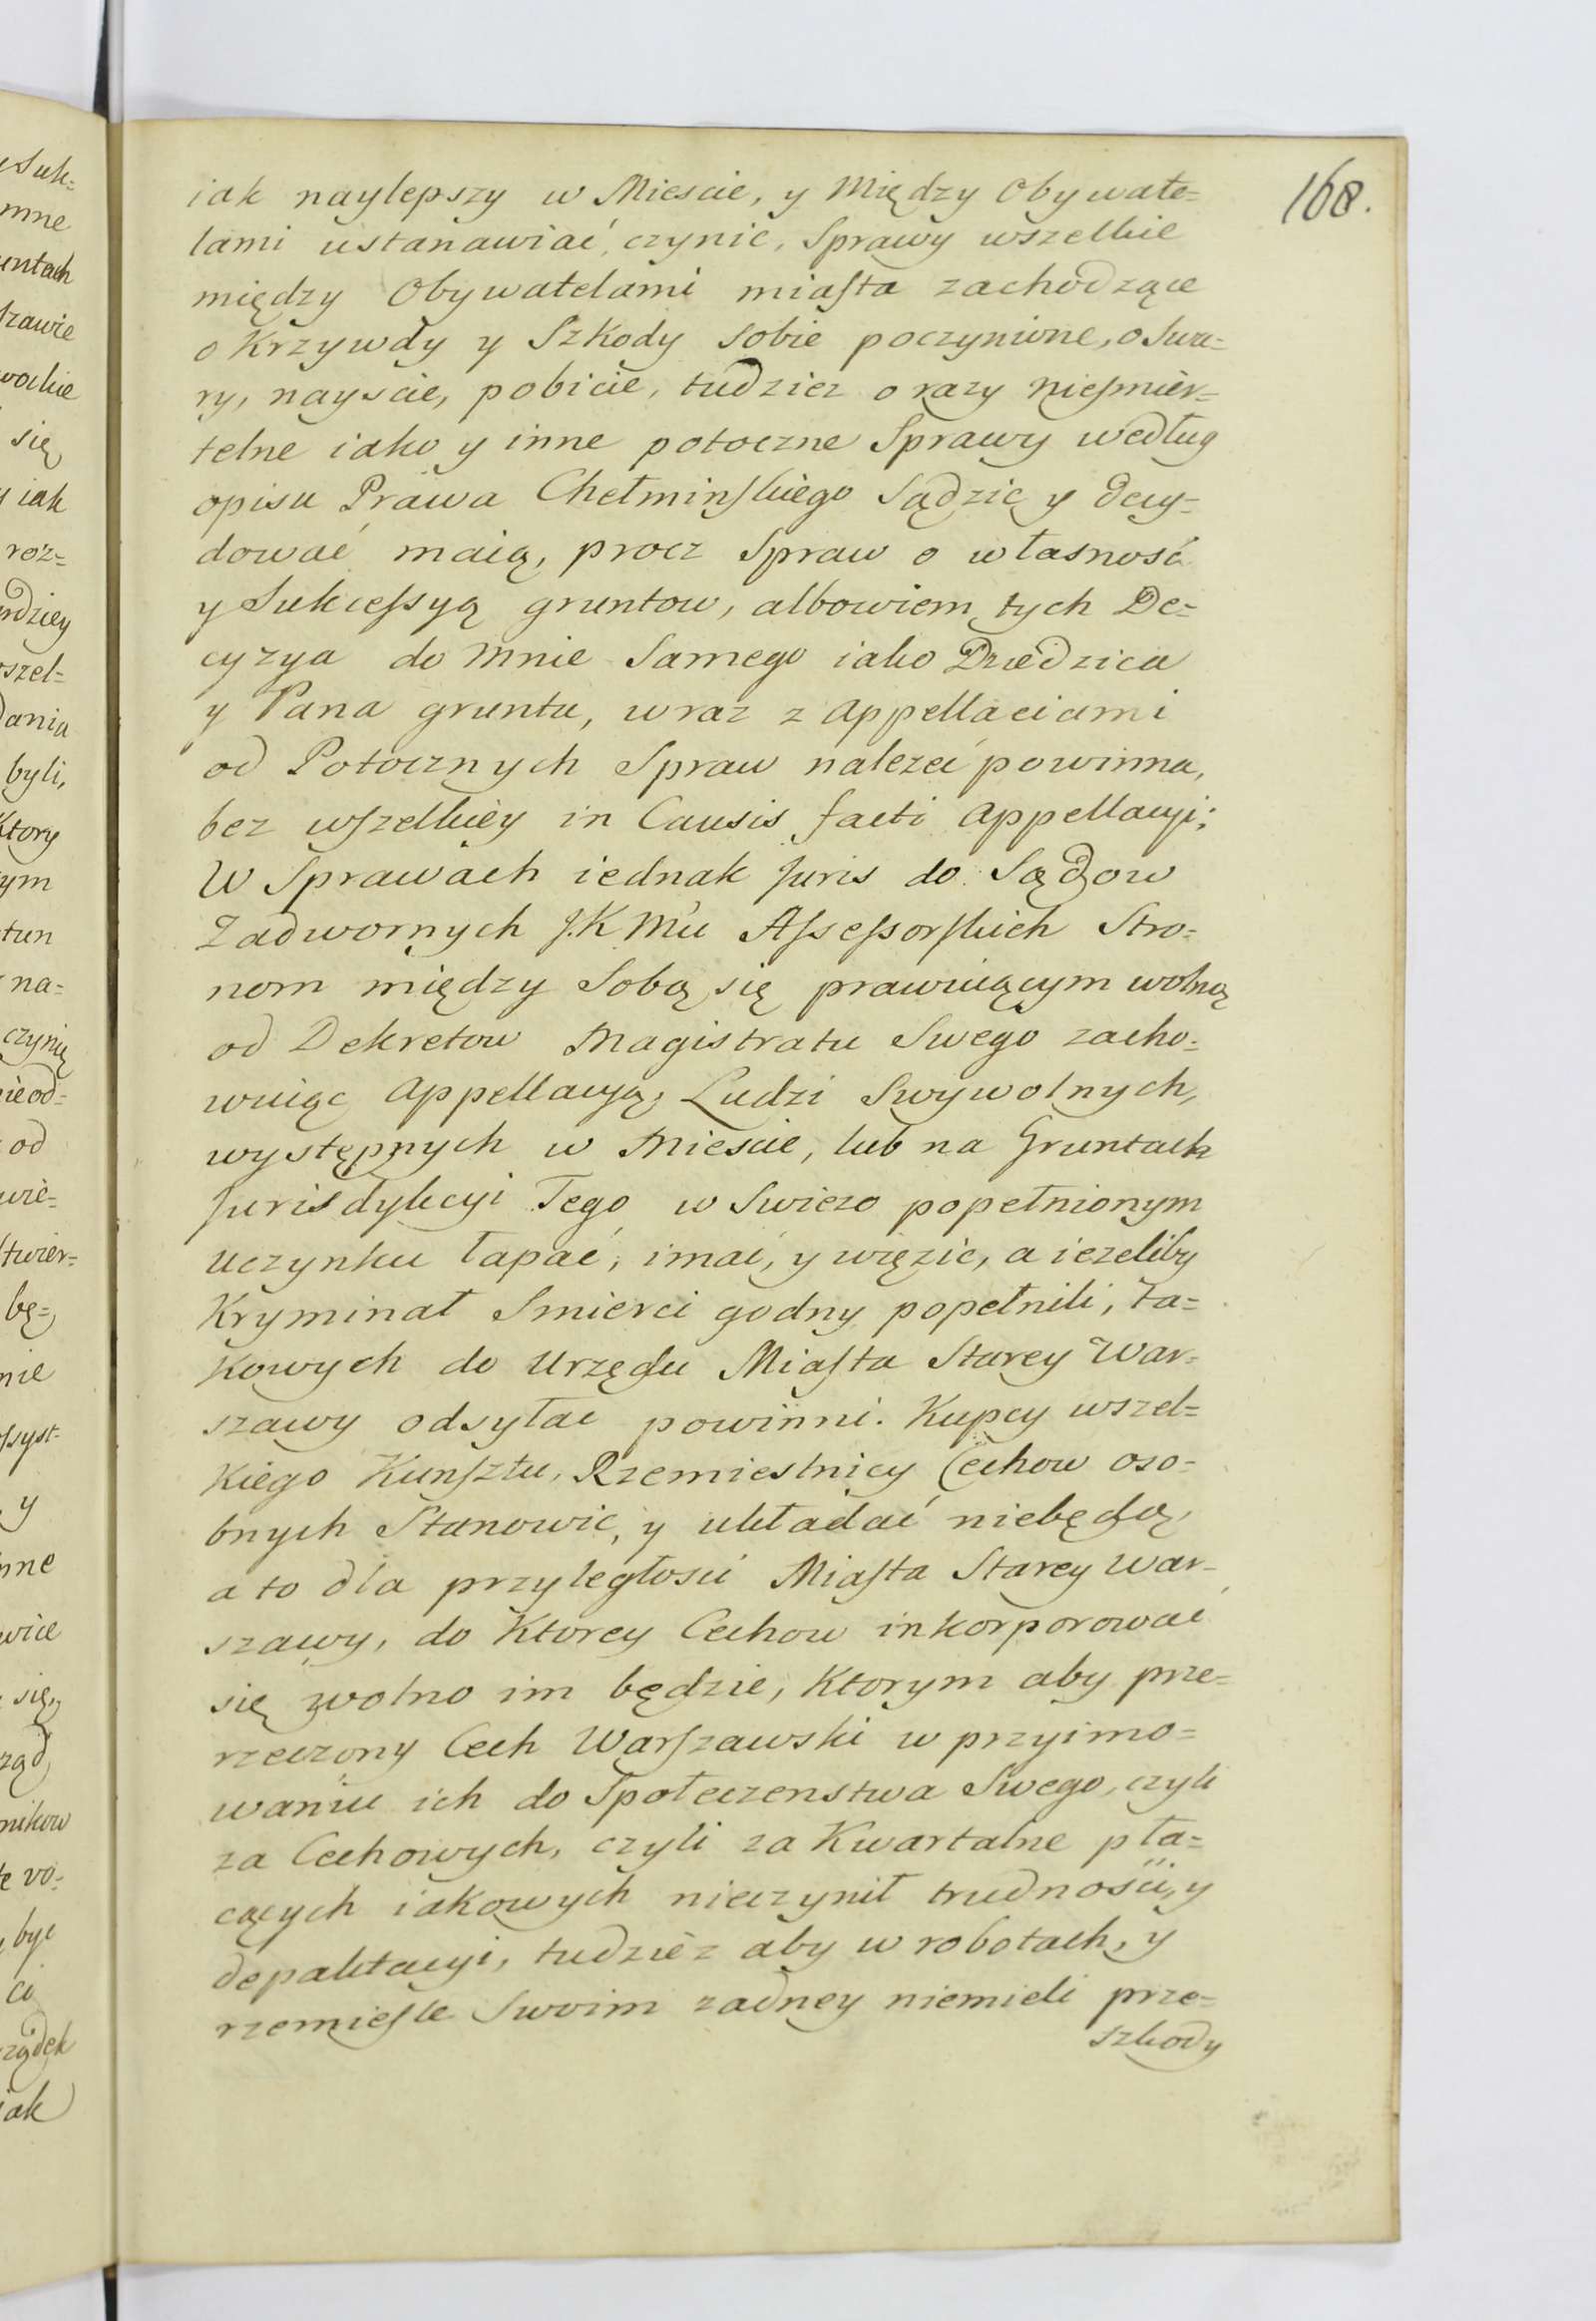 168.
iak naylepszy w Miescie, y Między Obywate=
lami ustanawiać, czynic, Sprawy wszelkie
między Obywatelami miasta zachodzące
o Krzywdy y Szkody sobie poczynione, o Swa=
ry, nayscie, pobicie, tudziez o razy niesmier=
telne iako y inne potoczne Sprawy według
opisu Prawa Chełminskiego Sądzic y decy=
dować maią, procz Spraw o własność
y Sukcessyą gruntow, albowiem tych De=
cyzya do Mnie Samego iako Dziedzica
y Pana gruntu, wraz z Appellaciami
od Potocznych Spraw nalezeć powinna,
bez wszelkiey in Causis facti Appellacyi;
W Sprawach iednak Juris do Sądow
Zadwornych J.K Mci Assessorskich Stro=
nom między Sobą się prawuiącym wolną
od Dekretow Magistratu Swego zacho=
wuiąc Appellacyą; Ludzi Swywolnych,
występnych w Miescie, lub na Gruntach
Jurisdykcyi Tego w Swiezo popełnionym
Uczynku łapać, imać, y więzic, a iezeliby
Kryminał Smierci godny popełnili, ta=
kowych do Urzędu Miasta Starey War=
szawy odsyłac powinni. Kupcy wszel=
kiego Kunsztu, Rzemiestnicy Cechow oso=
bnych Stanowic, y układać niebędą,
a to dla przyległości Miasta Starey War=
szawy, do Ktorey Cechow inkorporować
się wolno im będzie, Ktorym aby prze=
rzeczony Cech Warszawski w przyimo=
waniu ich do Społeczenstwa Swego, czyli
za Cechowych, czyli za Kwartalne pła=
cących iakowych nieczynił trudności, y
depaktacyi, tudziez aby w robotach, y
rzemieśle Swoim zadney niemieli prze=
szkody